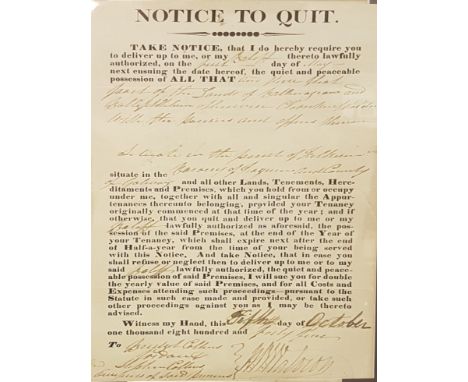 NOTICE TO QUIT.
TAKE NOTICE, that I do hereby require you
to deliver up to me, or my Bailiff thereto lawfully
authorized, on the first day of May
next ensuing the date hereof, the quiet and peaceable
possession of ALL THAT
part of the Lands of
with the houses and offices thereon
Situate in the parish of
situate in the Barony of and County
of Galway and all other Lands, Tenements, Here-
ditaments and Premises, which you hold from or occupy
under me, together with all and singular the Appur-
tenances thereunto belonging, provided your Tenancy
originally commenced at that time of the year; and if
otherwise, that you quit and deliver up to me or my
Bailiff lawfully authorized as aforesaid, the pos-
session of the said Premises, at the end of the Year of
your Tenancy, which shall expire next after the end
of Half-a-year from the time of your being served
with this Notice, And take Notice, that in case you
shall refuse or neglect then to deliver up to me or to my
said Bailiff lawfully authorized, the quiet and peace-
able possession of said Premises, I will sue you for double
the yearly value of said Premises, and for all Costs and
Expenses attending such proceedings—pursuant to the
Statute in such case made and provided, or take such
other proceedings against you as I may be thereto
advised.
Witness my Hand, this Fifth day of October
one thousand eight hundred and forty
To Collins
Stephen Collins
of said premises